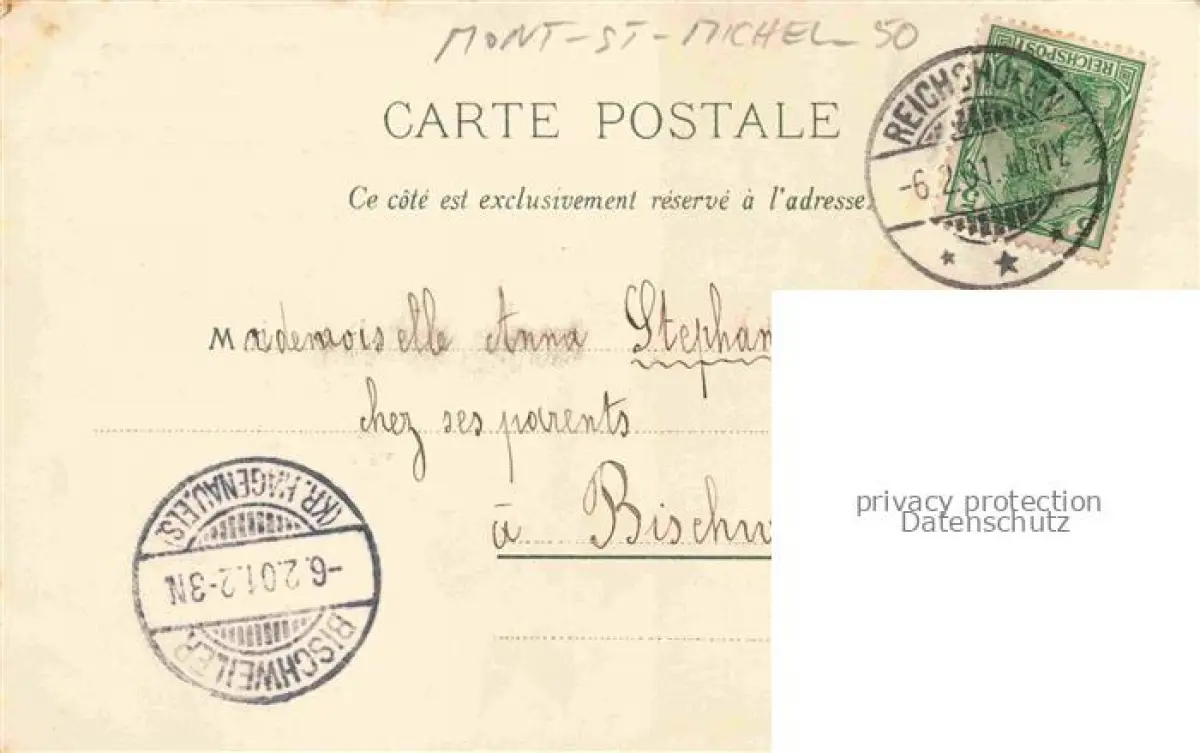 MONT-ST-MICHEL 50
REICHSPOST
CARTE POSTALE
REICHSHOFEN
-6.2.01.
Ce côté est exclusivement réservé à l'adresse.
5
Mademoiselle Anna Stephan
chez ses parents
à Bischw
(KR. HAGENAU. ELS)
-6.2.01.2-3N
BISCHWEILER.
privacy protection
Datenschutz